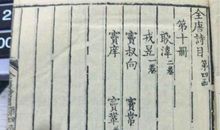 全唐詩目 第四函
第十冊
耿湋二卷
戎昱一卷
竇叔向 竇常
竇庠 竇鞏